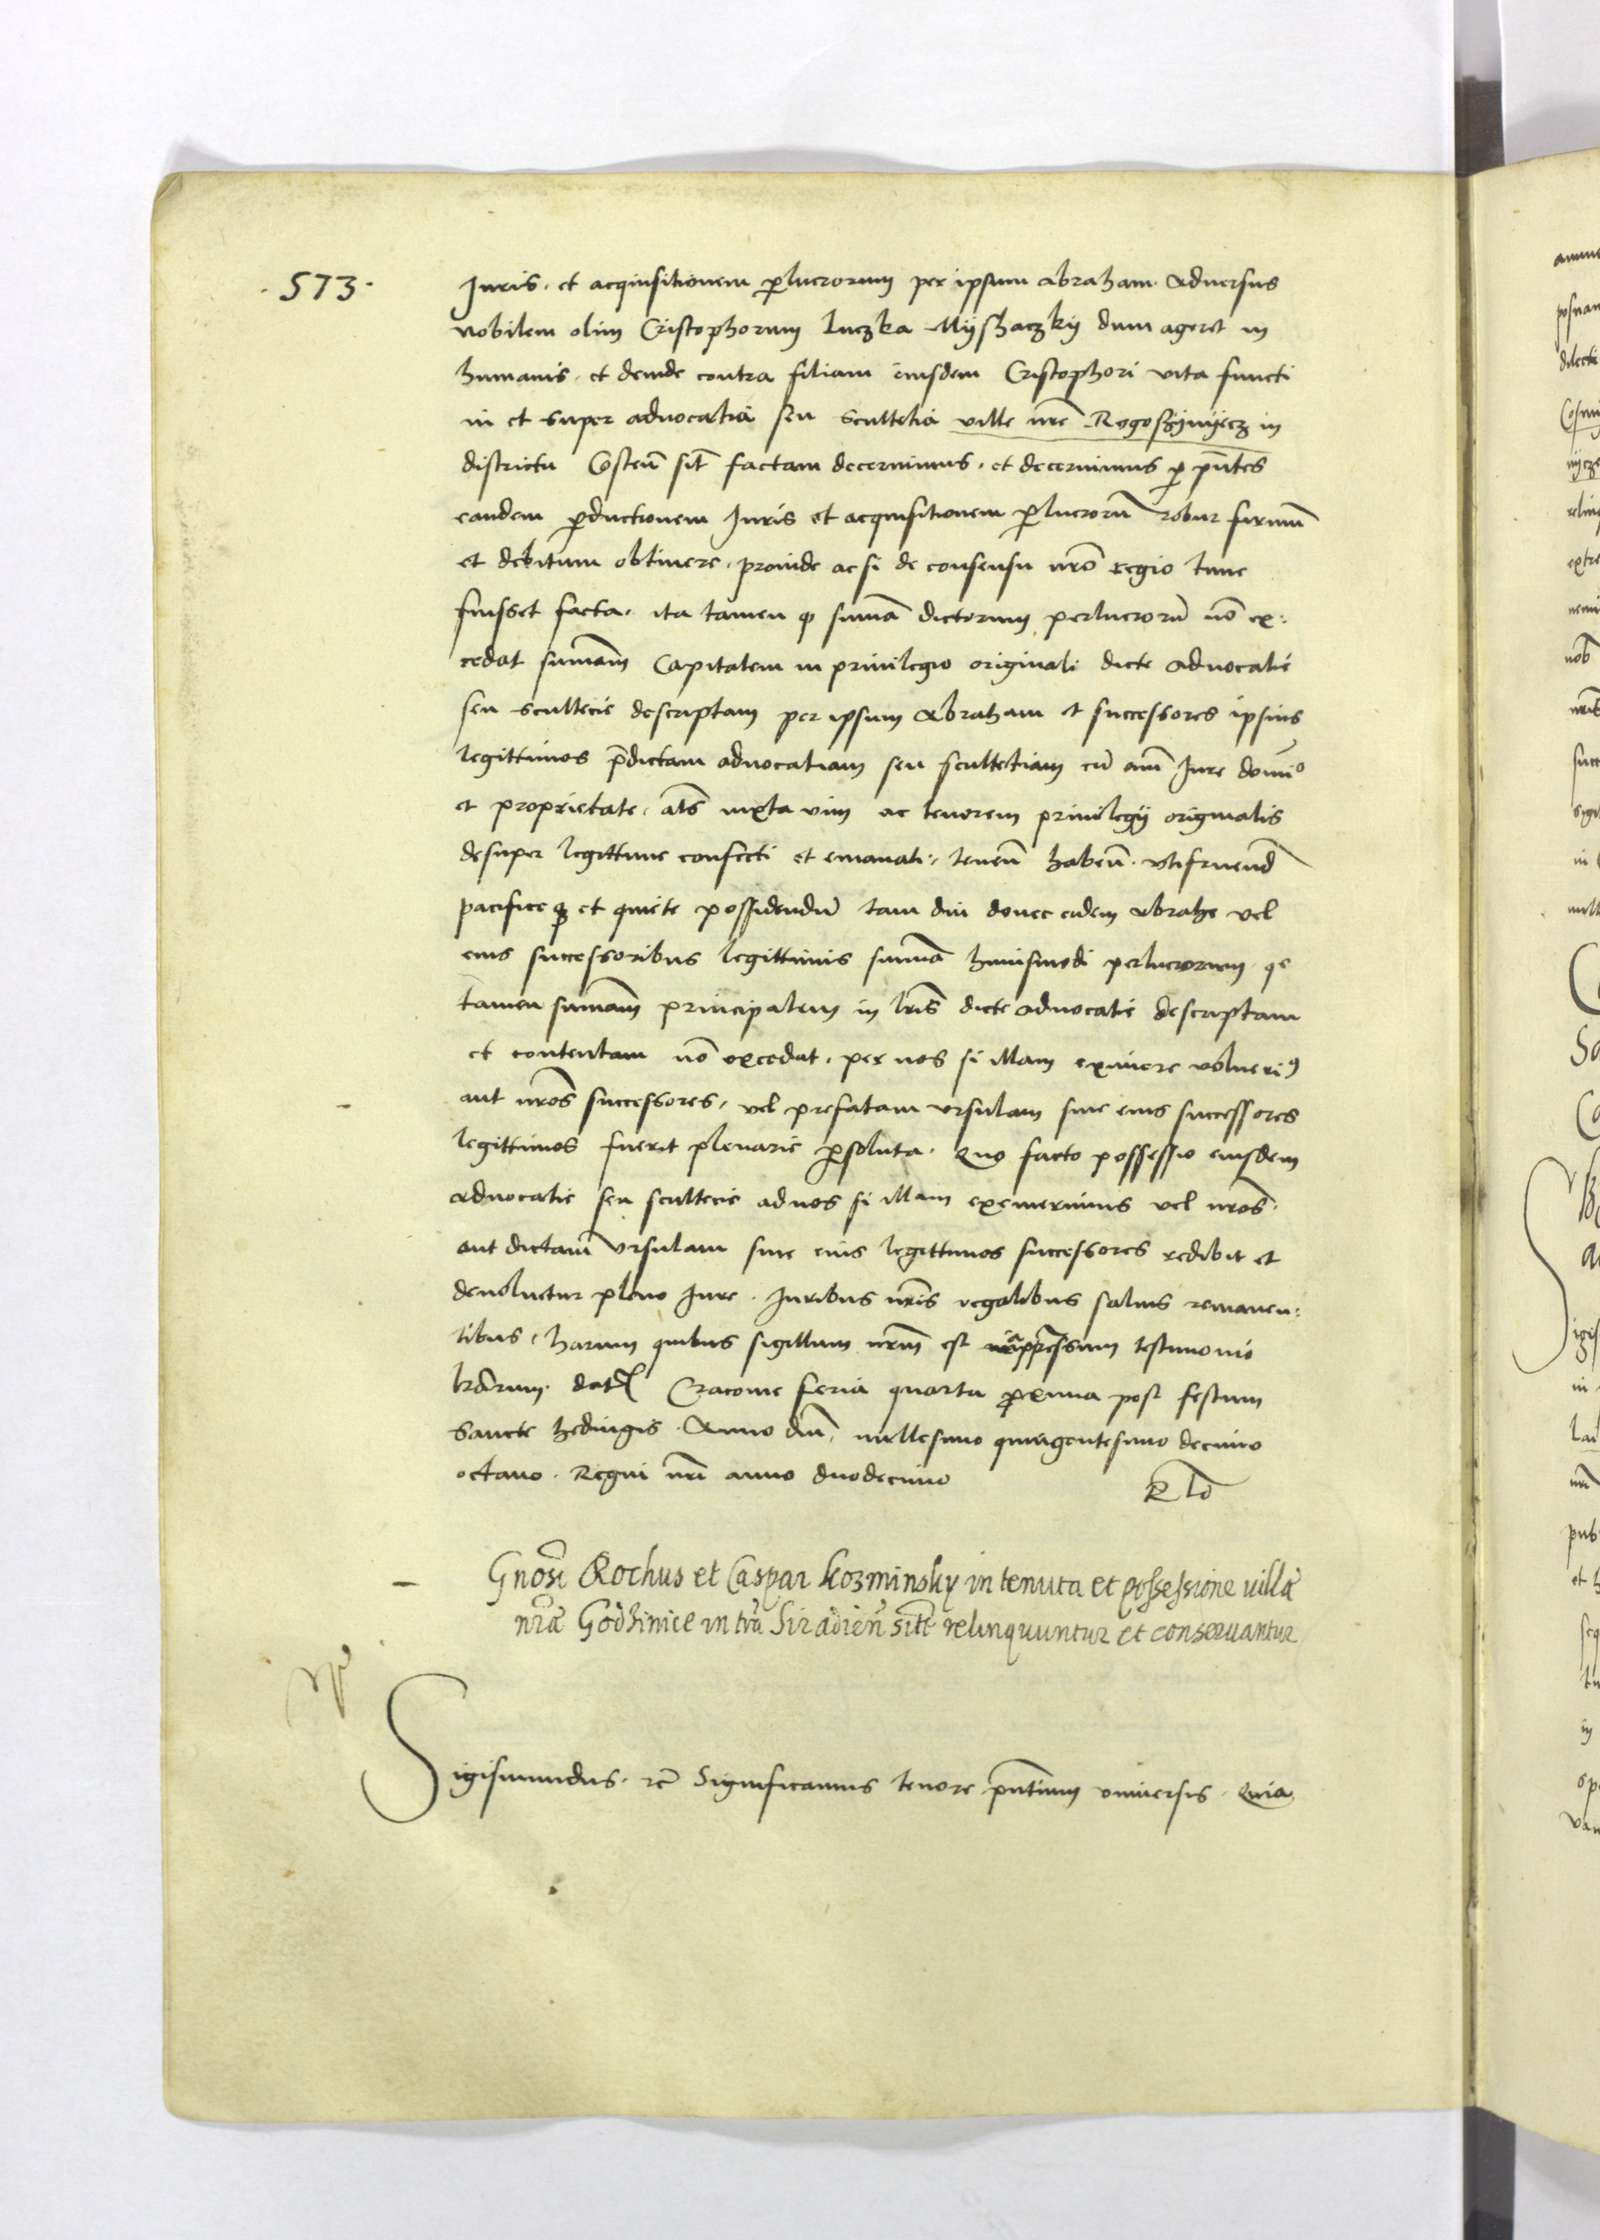 · 573 ·
Juris · et acquisitionem p̱lucrorum per ipsum abraham · Adversus
nobilem olim Cristophorum Luczka Mÿschaczkÿ dum ageret in
humanis · et deinde contra filiam eiusdem Cristophori vita functi
in et super advocatia seu scultetia ville nr̄e Rogoszÿnÿecz in
districtu Costeñ sit̄ factam decernimus · et decernimus p̱ pn̄tes
eandem p̱ductionem Juris et acquisitionem p̱lucrorū robur firmū
et debitum obtinere · proinde ac si de consensu nrō regio tunc
fuisset facta · ita tamen q̱ sum̄a dictorum perlucrorū nō ex:
cedat sum̄am Capitalem in privilegio originali dicte Advocatie
seu scultecie descriptam per ipsum Abraham et successores ipsius
legittimos p̄dictam advocatiam seu scultetiam cū om̄i Jure domīo
et proprietate · als̄ iuxta vim ac tenorem privilegÿ originalis
desuper legittime confecti et emanati · teneñ habeñ · utifruend
pacifice q̱ et quiete possidendū tam diu donec eidem Abrahe vel
eius successoribus legittimis sum̄a huiusmodi perlucrorum · qe
tamen sum̄am principalem in lr̄is dicte advocatie descriptam
et contentam nō excedat · per nos si illam eximere voluerim9
aut nr̄os successores · vel prefatam ursulam sive eius successores
legittimos fuerit plenarie p̱soluta · Quo facto possessio eiusdem
Advocatie seu scultecie ad nos si illam exemerimus vel nr̄os ·
aut dictam̄ Ursulam sive eius legittimos successores redibit et
devoluetur pleno Jure · Juribus nr̄is regalibus salvis remanen:
tibus · harum quibus sigillum nr̄m est appressum testimonio
lr̄arum · dat Cracovie feria quarta p̱xima post festum
Sancte hedvigis · Anno dn̄i · millesimo quingentesimo decimo
octavo · Regni nr̄i anno duodecimo
Gnōsi Rochus et Caspar Kozminsky in tenuta et possessione villæ
nr̄æ Godzinice in tr̄a Siradien̄ sitæ relinquuntur et conservantur
Sigismundus · rc̄ Significamus tenore pn̄tium universis · Quia